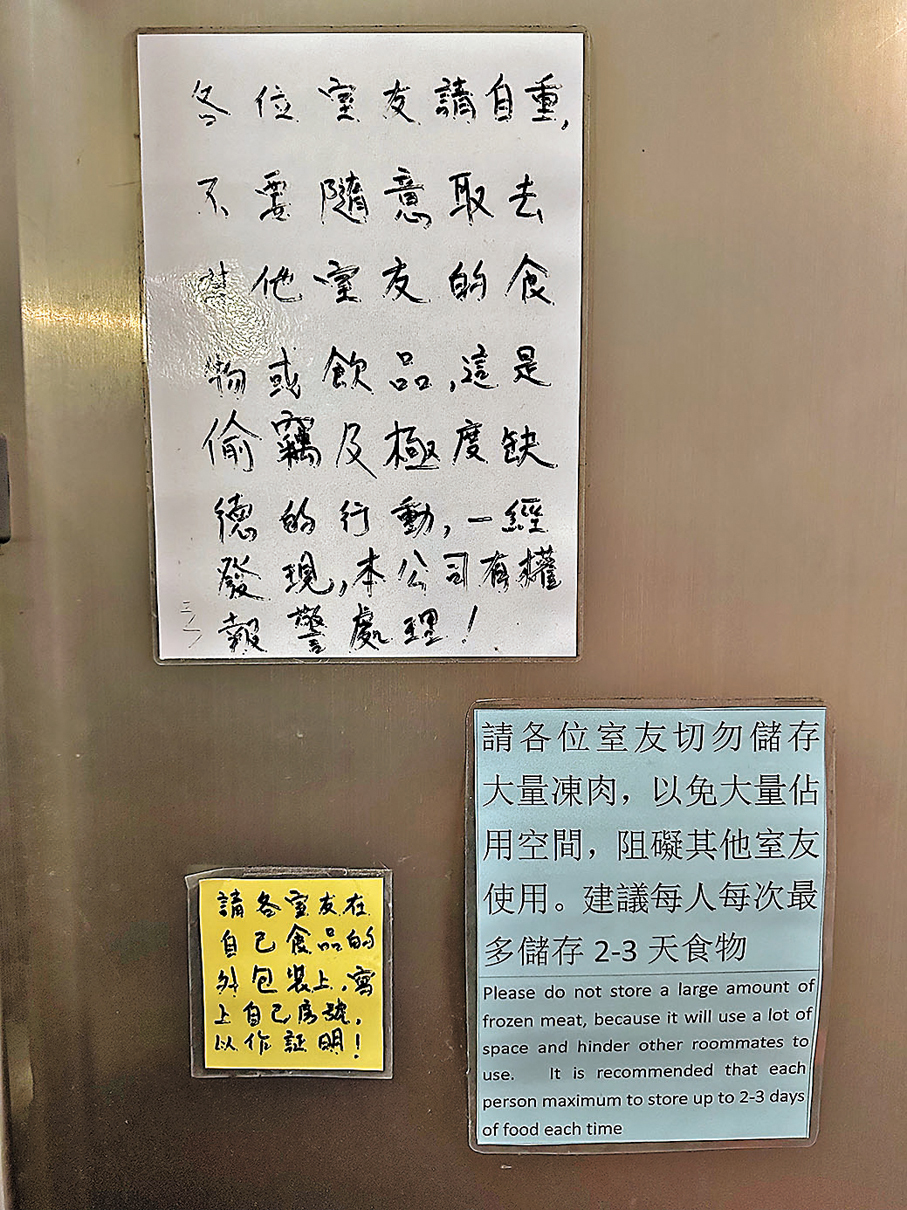 各位室友請自重,
不要隨意取去
其他室友的食
物或飲品,這是
偷竊及極度缺
德的行動,一經
發現,本公司有權
報警處理!
請各室友在
自己食品的
外包裝上,寫
上自己房號,
以作証明!
請各位室友切勿儲存
大量凍肉，以免大量佔
用空間，阻礙其他室友
使用。建議每人每次最
多儲存 2-3 天食物
Please do not store a large amount of
frozen meat, because it will use a lot of
space and hinder other roommates to
use. It is recommended that each
person maximum to store up to 2-3 days
of food each time